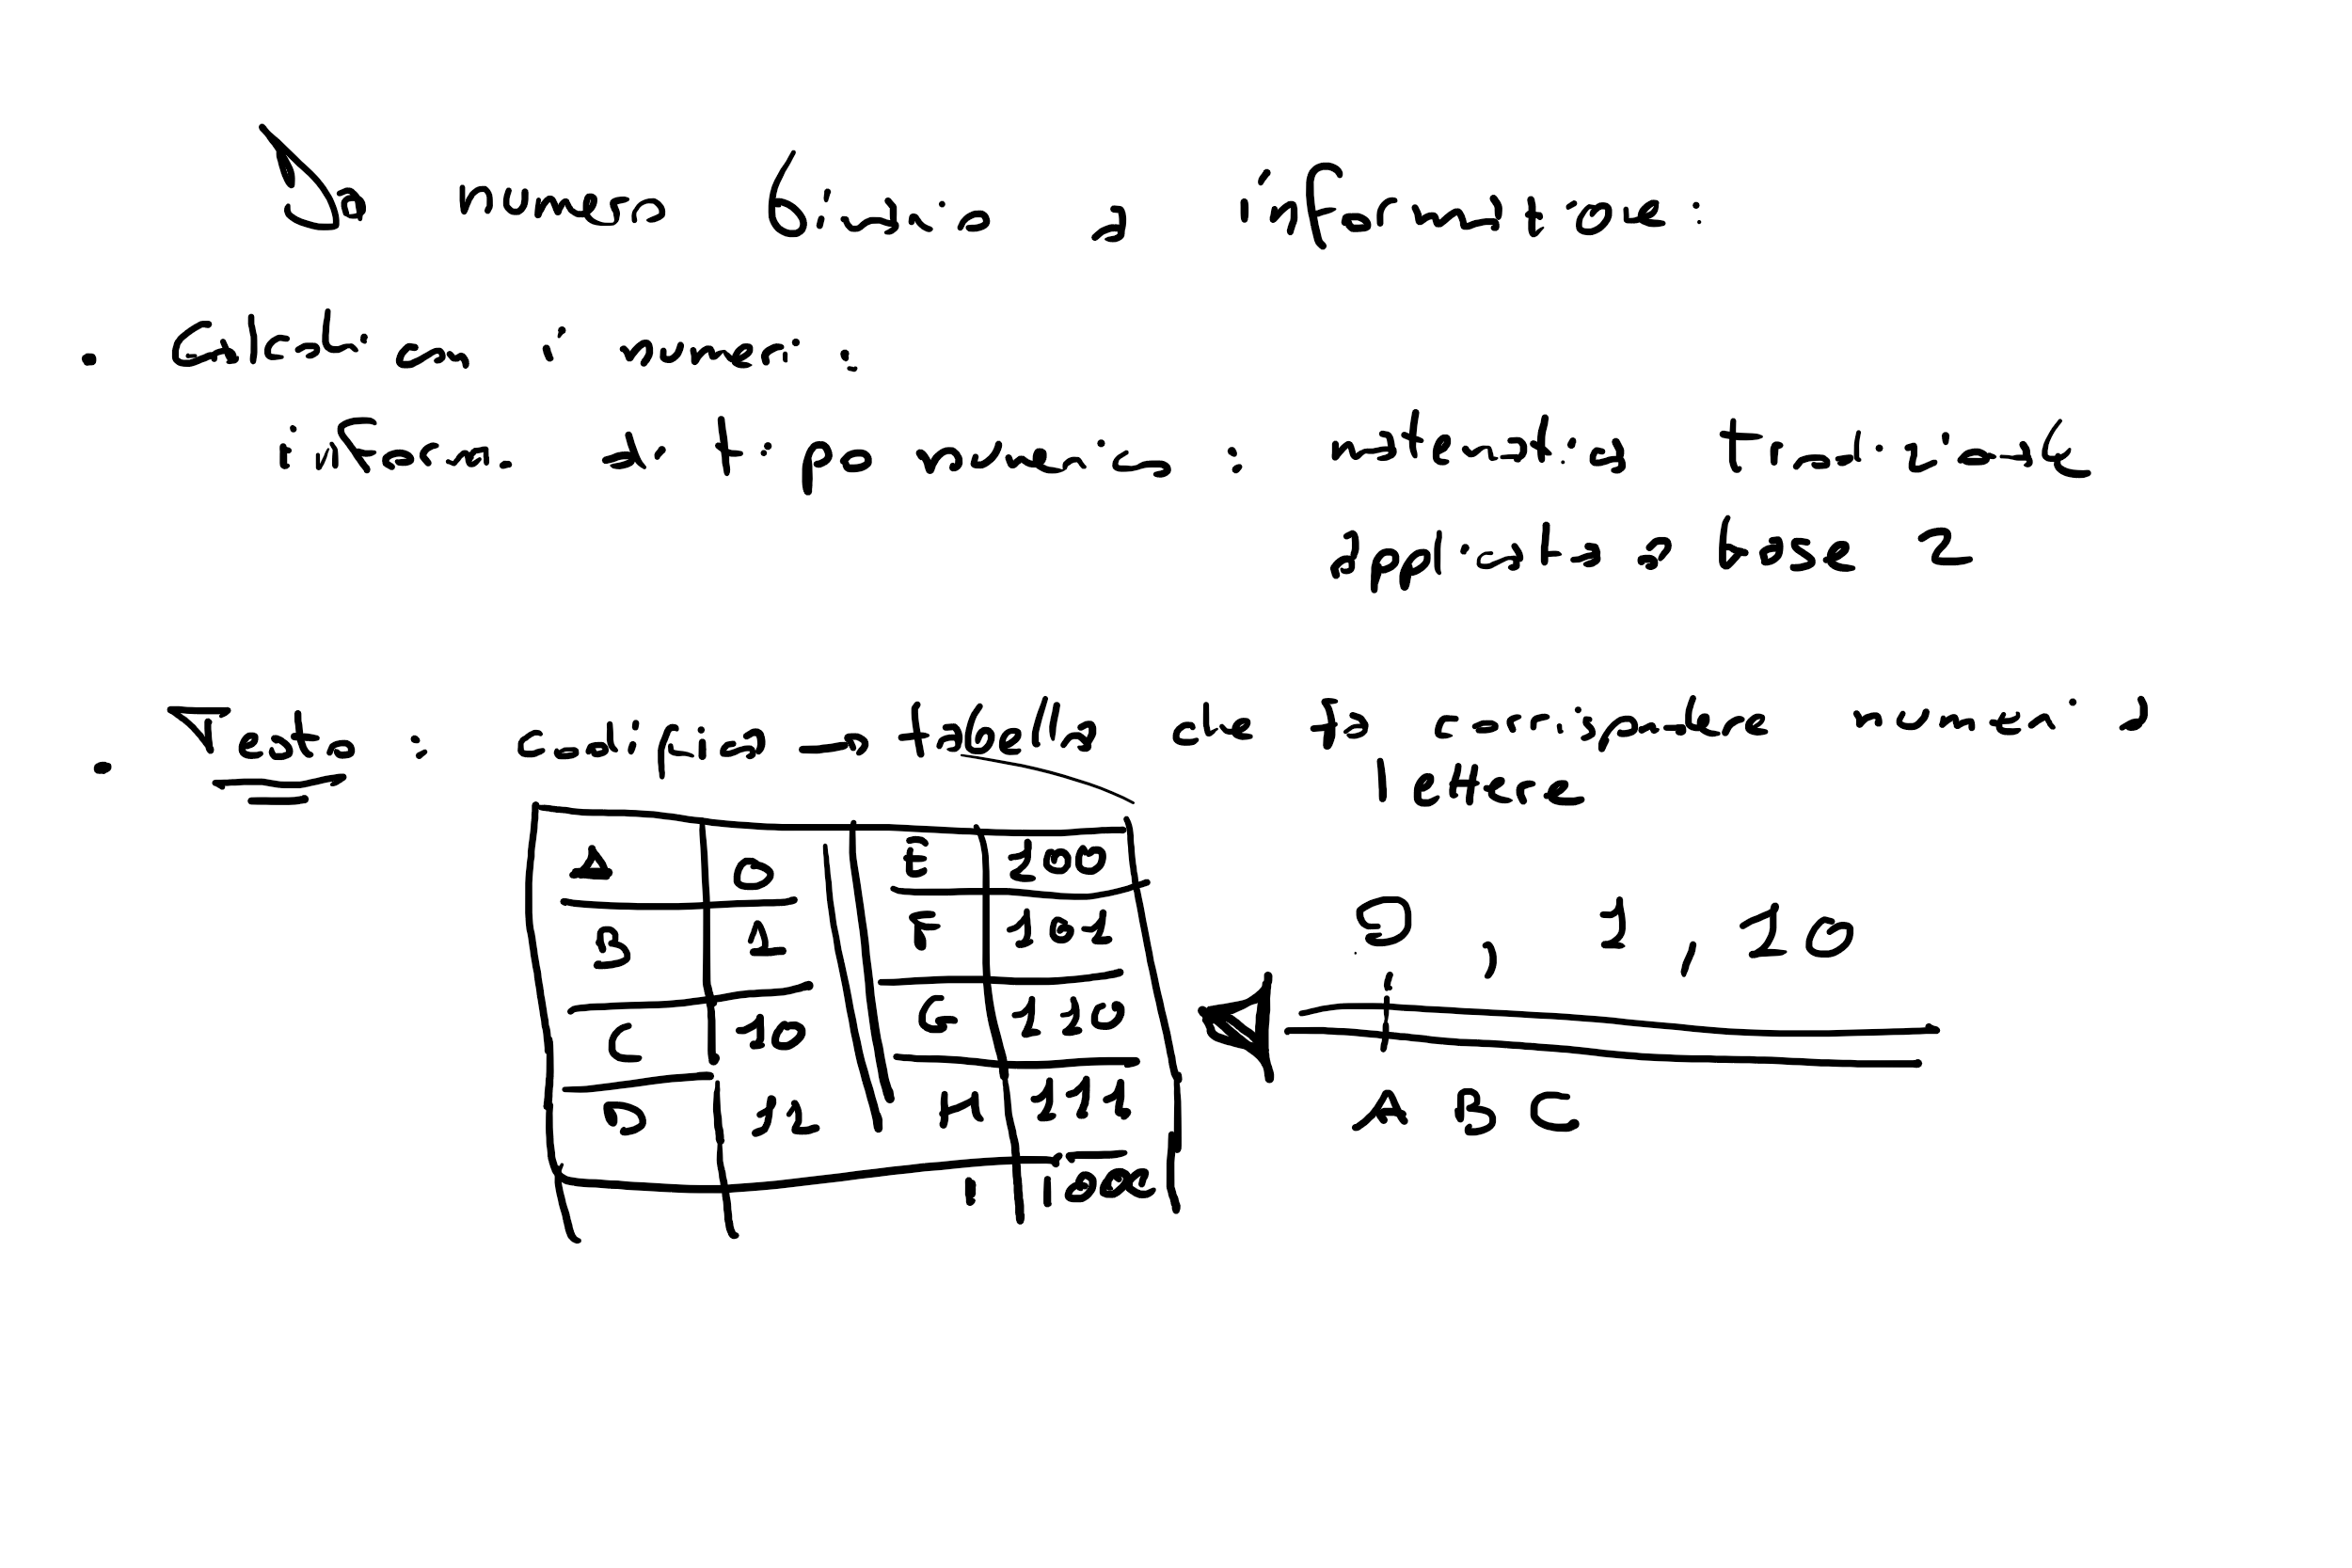 Da numero binario a informazione:
• Calcoli con i numeri:
informazioni di tipo numerico: matematica tradizionale
applicata a base 2
• Testo: codifica con tabella che fa corrispondere numeri a
lettere
A 0 E 100
B 1 F 101
C 10 G 110
D 11 H 111
I 1000
0, 1, 10
A B C